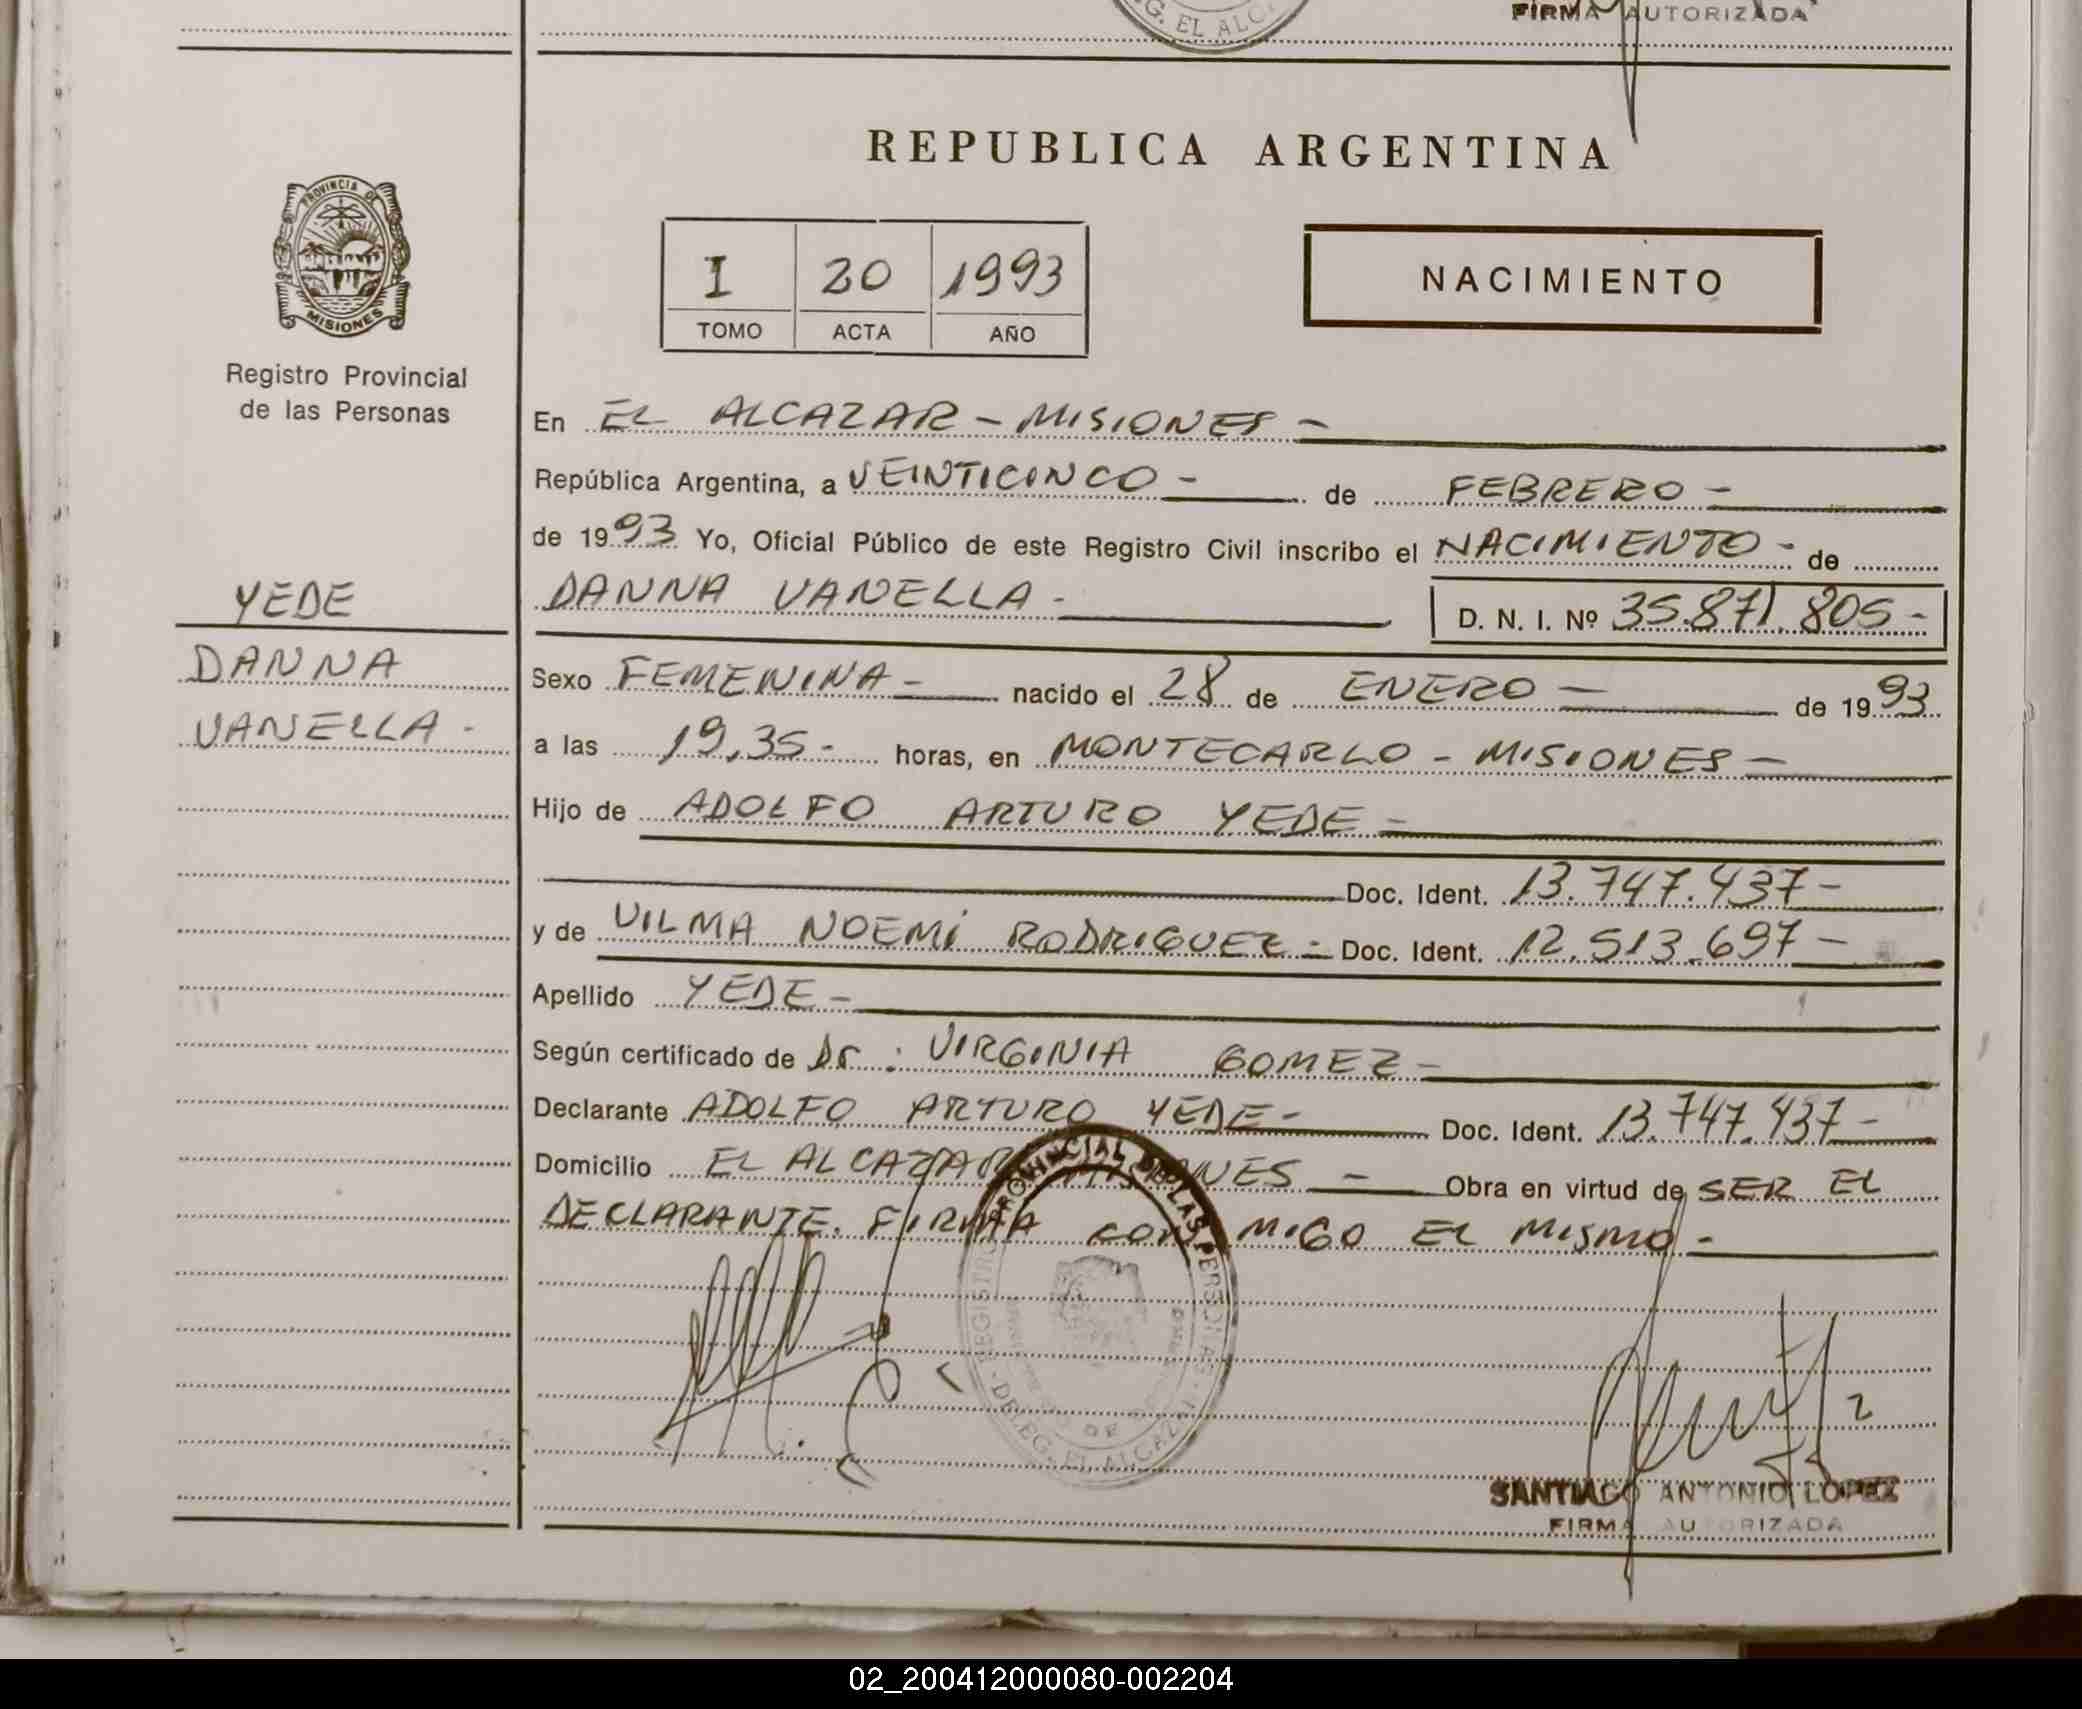 G. EL ALCA
FIRMA AUTORIZADA
REPUBLICA ARGENTINA
PROVINCIA DE
MISIONES
Registro Provincial
de las Personas
I 20 1993
TOMO ACTA AÑO
NACIMIENTO
En EL ALCAZAR - MISIONES -
República Argentina, a VEINTICINCO - de FEBRERO -
de 1993 Yo, Oficial Público de este Registro Civil inscribo el NACIMIENTO - de
YEDE
DANNA VANELLA - D. N. I. Nº 35.871.805-
DANNA
VANELLA -
Sexo FEMENINA - nacido el 28 de ENERO - de 1993
a las 19,35 - horas, en MONTECARLO - MISIONES -
Hijo de ADOLFO ARTURO YEDE -
Doc. Ident. 13.747.437-
y de VILMA NOEMí RODRIGUEZ - Doc. Ident. 12.513.697-
Apellido YEDE -
Según certificado de Dr : VIRGINIA GOMEZ -
Declarante ADOLFO ARTURO YEDE - Doc. Ident. 13.747.437-
Domicilio EL ALCAZAR MISIONES - Obra en virtud de SER EL
DECLARANTE. FIRMA CONMIGO EL MISMO -
REGISTRO PROVINCIAL DE LAS PERSONAS
DELEG. EL ALCAZAR
SANTIAGO ANTONIO LOPEZ
FIRMA AUTORIZADA
02_200412000080-002204